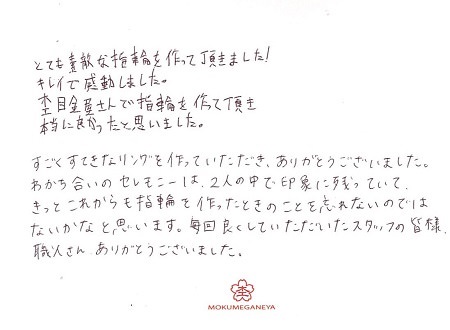 とても素敵な指輪を作って頂きました!
キレイで感動しました。
杢目金屋さんで指輪を作て頂き
本当に良かったと思いました。
すごくすてきなリングを作っていただき、ありがとうございました。
わかち合いのセレモニーは、2人の中で印象に残っていて、
きっとこれからも指輪を作ったときのことを忘れないのでは
ないかなと思います。毎回良くしていただいたスタッフの皆様、
職人さん ありがとうございました。
杢
MOKUMEGANEYA